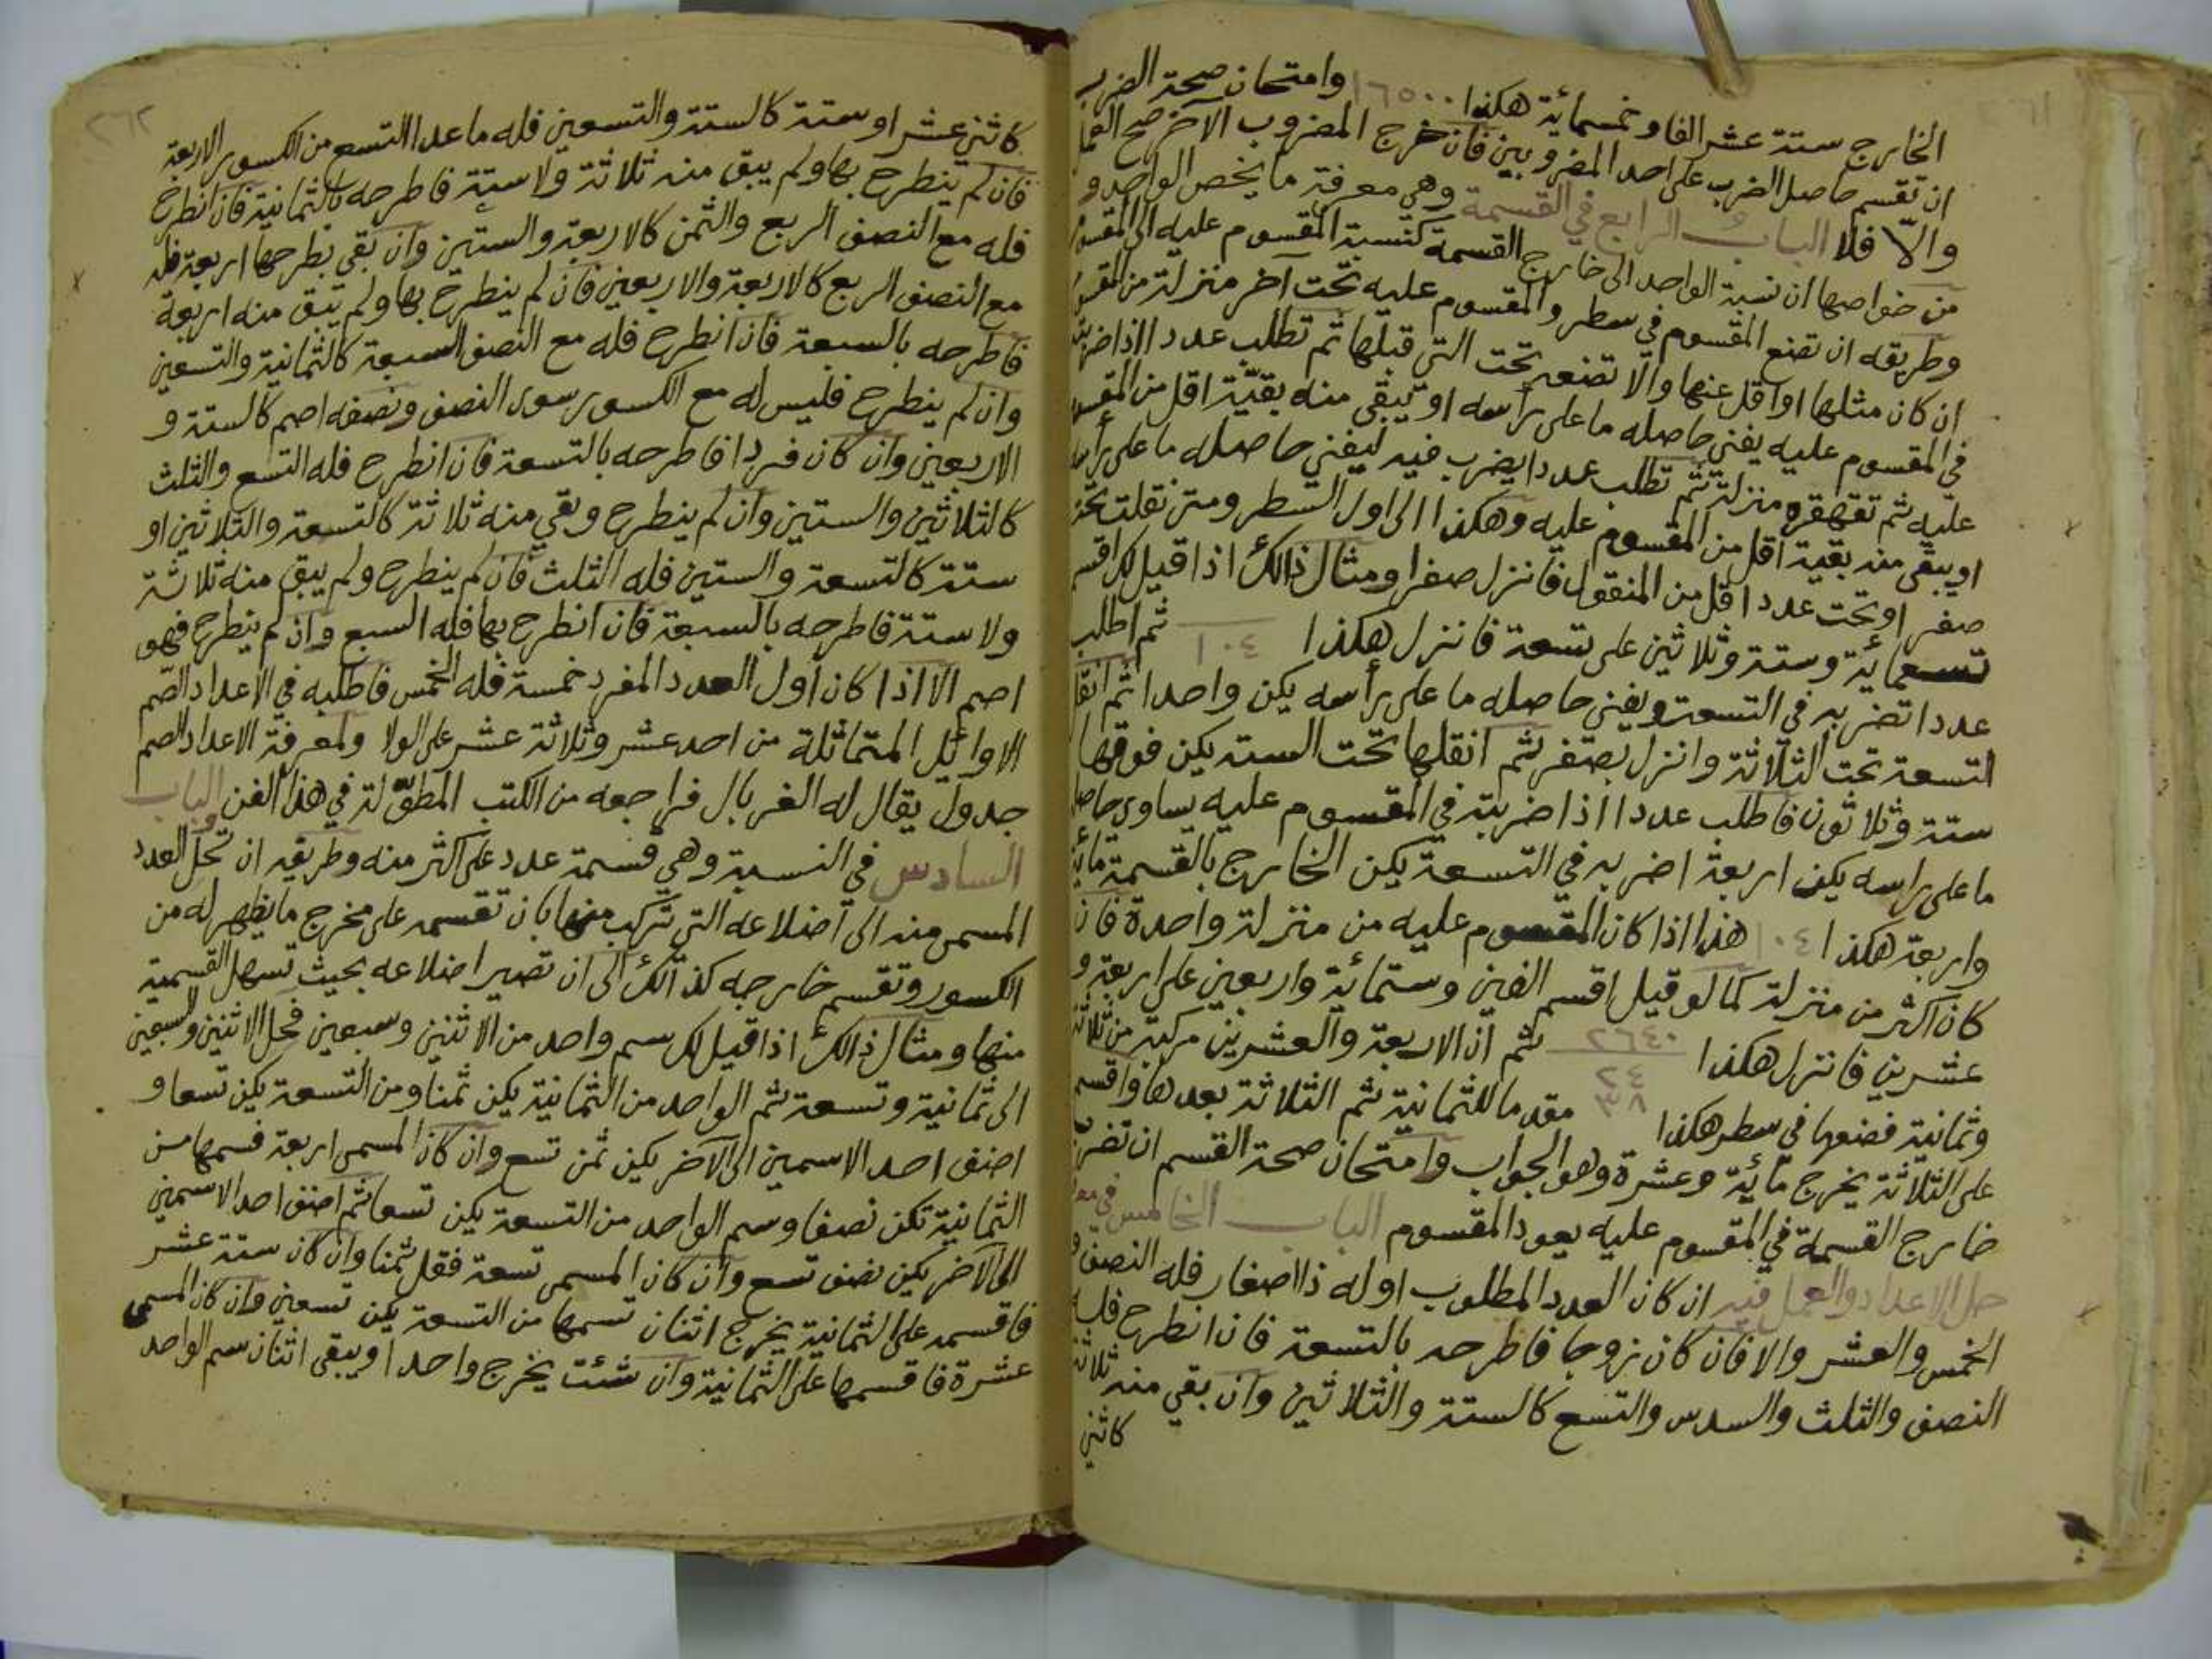 الخارج ستة عشر الفا وخمسمائة هكذا ١٦٥٠٠ وامتحان صحة الضرب
ان تقسم حاصل الضرب على احد المضروبين فان خرج المضروب الآخر صح العمل
والّا فلا الباب الرابع في القسمة وهي معرفة ما يخص الواحد و
من خواصها ان نسبة الواحد الى خارج القسمة كنسبة المقسوم عليه الى المقسوم
وطريقه ان تضع المقسوم في سطر والمقسوم عليه تحت آخر منزلة من المقسوم
ان كان مثلها او اقل عنها والا تضعه تحت التي قبلها ثم تطلب عددا اذا ضربته
في المقسوم عليه يفني حاصله ما على رأسه او تبقى منه بقيّة اقل من المقسوم
عليه ثم تقهقره منزلة ثم تطلب عددا يضرب فيه ليفني حاصله ما على رأسه
او يبقى منه بقية اقل من المقسوم عليه وهكذا الى اول السطر ومتى نقلت تحت
صفر او تحت عدد اقل من المنقول فانزل صفرا ومثال ذالك اذا قيل لك اقسم
تسعمائة وستة وثلاثين على تسعة فانزل هكذا ١٠٤ ثم اطلب
عددا تضربه في التسعة ويفني حاصله ما على رأسه يكن واحدا ثم انقل
التسعة تحت الثلاثة وانزل بصفر ثم انقلها تحت الستة يكن فوقها
ستة وثلاثون فاطلب عددا اذا ضربته في المقسوم عليه يساوي حاصله
ما على راسه يكن اربعة اضربه في التسعة يكن الخارج بالقسمة مائة
واربعة هكذا ١٠٤ هذا اذا كان المقسوم عليه من منزلة واحدة فان
كان اكثر من منزلة كما لو قيل اقسم الفين وستمائة واربعين على اربعة و
عشرين فانزل هكذا ٢٦٤٠ ٢٤ ثم ان الاربعة والعشرين مركبة من ثلاثة
وثمانية فضعها في سطر هكذا ٣٨ مقدما للثمانية ثم الثلاثة بعدها واقسم
على الثلاثة يخرج مائة وعشرة وهو الجواب وامتحان صحة القسم ان تضرب
خارج القسمة في المقسوم عليه يعود المقسوم الباب الخامس في
حل الاعداد والعمل فيه ان كان العدد المطلوب اوله ذا اصفار فله النصف و
الخمس والعشر والا فان كان زوجا فاطرحه بالتسعة فان انطرح فله
النصف والثلث والسدس والتسع كالستة والثلاثين وان بقي منه ثلاثة
كاثني
٢٦٢
كاثني عشر او ستة كالستة والتسعين فله ما عدا التسع من الكسور الاربعة
فان لم ينطرح بها ولم يبق منه ثلاثة ولا ستة فاطرحه بالثمانية فان انطرح
فله مع النصف الربع والثمن كالاربعة والستين وان بقي بطرحها اربعة فله
مع النصف الربع كالاربعة والاربعين فان لم ينطرح بها ولم تبق منه اربعة
فاطرحه بالسبعة فان انطرح فله مع النصف السبعة كالثمانية والتسعين
وان لم ينطرح فليس له مع الكسور سوى النصف ونصفه اصم كالستة و
الاربعين وان كان فردا فاطرحه بالتسعة فان انطرح فله التسع والثلث
كالثلاثين والستين وان لم ينطرح وبقي منه ثلاثة كالتسعة والثلاثين او
ستة كالتسعة والستين فله الثلث فان لم ينطرح ولم يبق منه ثلاثة
ولا ستة فاطرحه بالسبعة فان انطرح بها فله السبع وان لم ينطرح فهو
اصم الا اذا كان اول العدد المفرد خمسة فله الخمس فاطلبه في الاعداد الصّم
الاوائل المتماثلة من احد عشر وثلاثة عشر على الولا ولمعرفة الاعداد الصم
جدول يقال له الغربال فراجعه من الكتب المطوّلة في هذا الفن الباب
السادس في النسبة وهي قسمة عدد على اكثر منه وطريقه ان تحل العدد
المسمى منه الى اضلاعه التي تركب منها بان تقسمه على مخرج ما يظهر له من
الكسور وتقسم خارجه كذالك الى ان تصير اضلاعه بحيث تسهل القسمية
منها ومثال ذالك اذا قيل لك سم واحد من الاثنين وسبعين فحل الاثنين والسبعين
الى ثمانية وتسعة ثم الواحد من الثمانية يكن ثمنا ومن التسعة يكن تسعا و
اضف احد الاسمين الى الآخر يكن ثمن تسع وان كان المسمى اربعة فسمها من
الثمانية تكن نصفا وسم الواحد من التسعة يكن تسعا ثم اضف احد الاسمين
الى الآخر يكن نصف تسع وان كان المسمى تسعة فقل ثمنا وان كان ستة عشر
فاقسمه على الثمانية يخرج اثنان تسمها من التسعة يكن تسعين وان كان المسمى
عشرة فاقسمها على الثمانية وان شئت يخرج واحد او يبقى اثنان سم الواحد